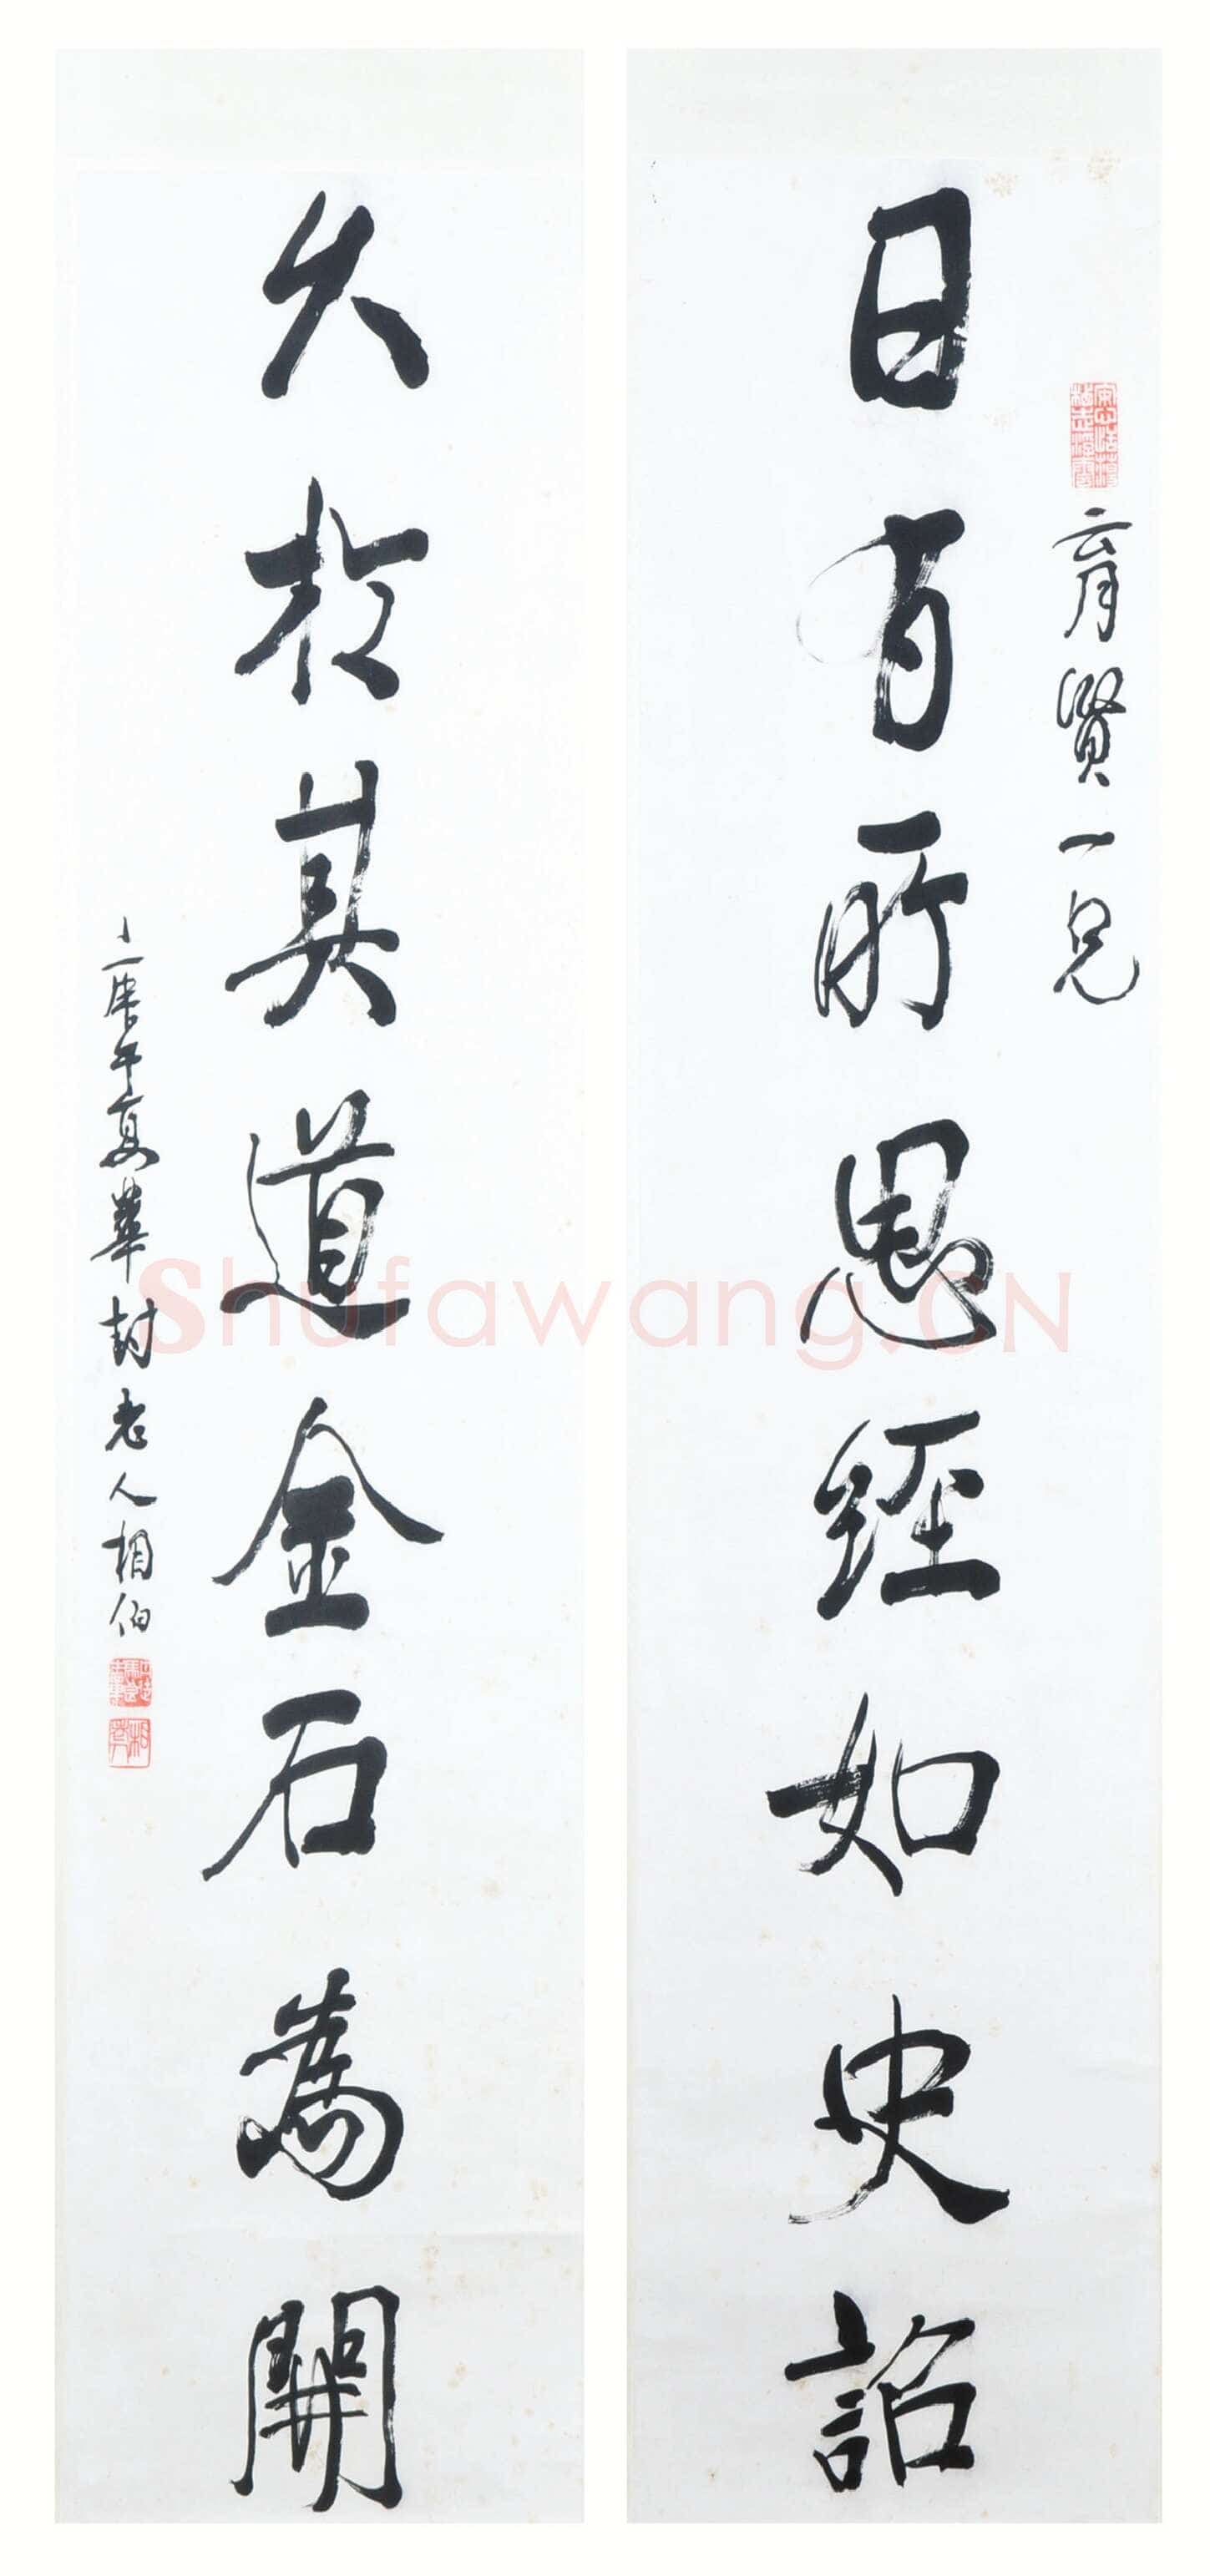 育賢一兄
日有所思經如史詔
久於其道金石為開
庚午夏華封老人相伯
Shufawang.CN